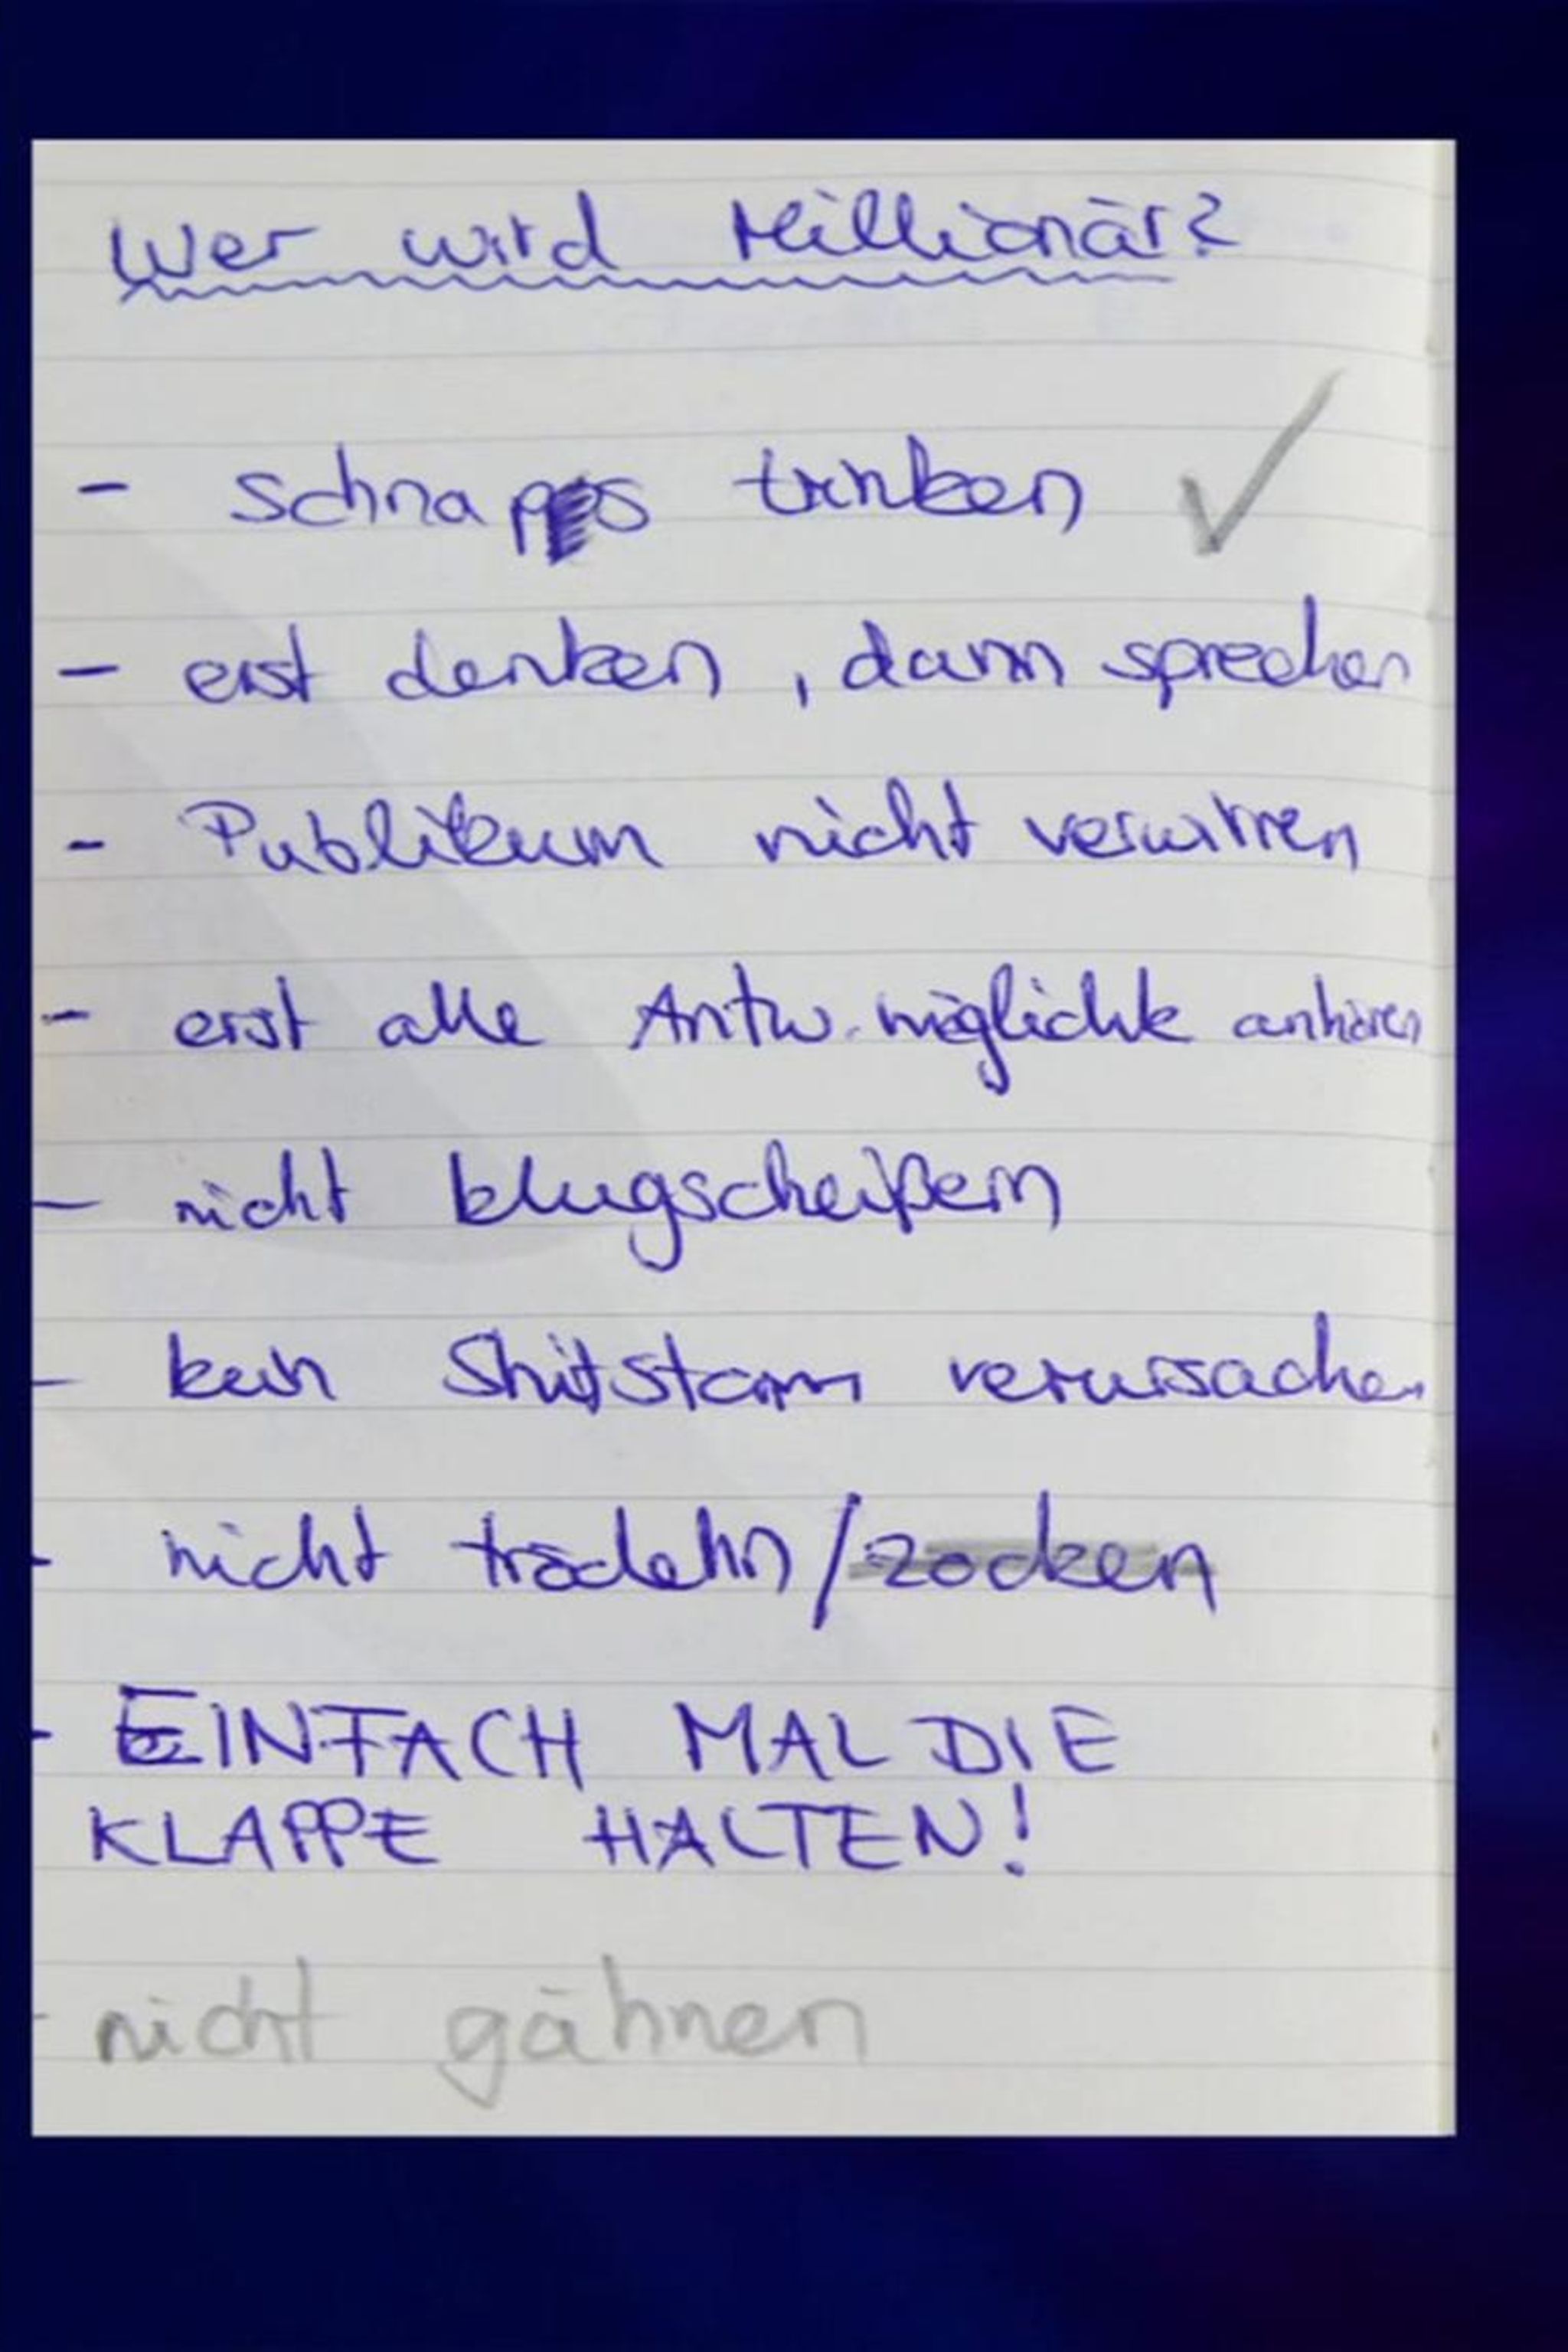 Wer wird Millionär?
- Schnaps trinken ✓
- erst denken, dann sprechen
- Publikum nicht verwirren
- erst alle Antw.möglichk anhören
- nicht klugscheißern
- kein Shitstorm verursachen
- nicht trödeln/zocken
- EINFACH MAL DIE
KLAPPE HALTEN!
- nicht gähnen